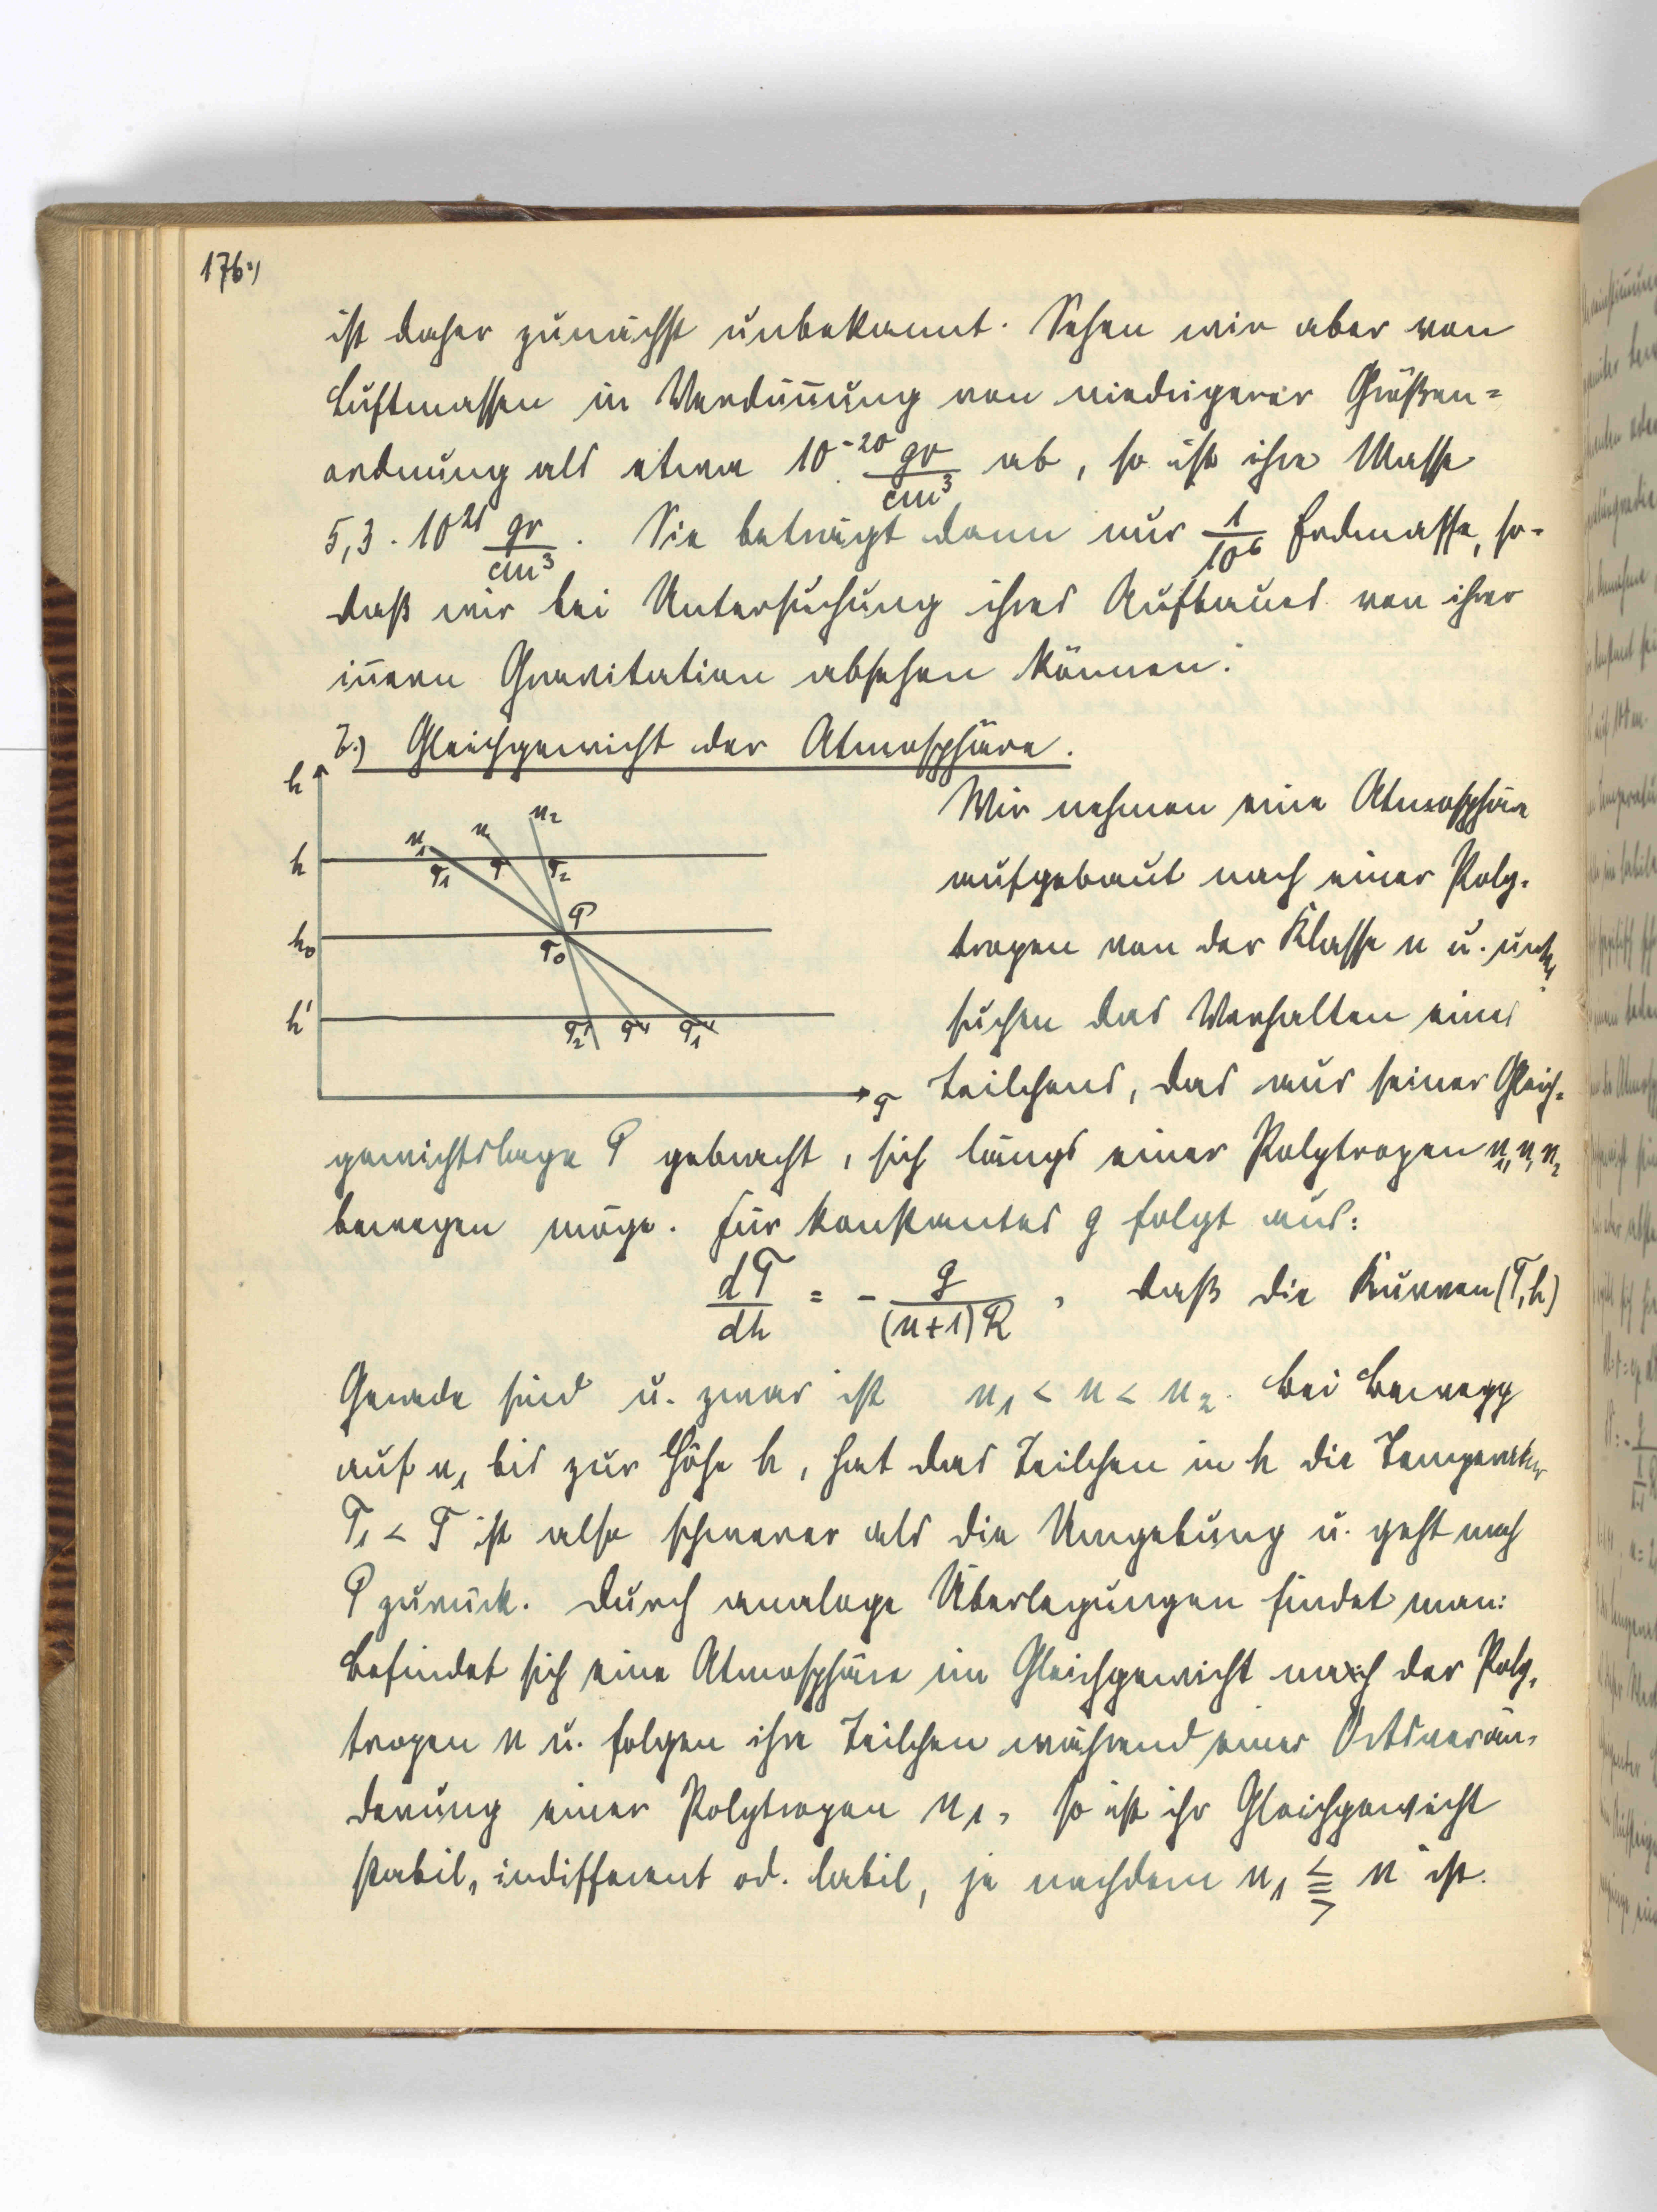 176.)
ist daher zunächst unbekannt. Sehen wir aber von
Luftmassen in Verdünnung von niedrigerer Größen=
ordnung als etwa 10^-20 gr/cm³ ab, so ist ihre Masse
5,3 · 10^21 gr/cm³. Sie beträgt dann nur 1/10^6 Erdmasse, so-
daß wir bei Untersuchung ihres Aufbaues von ihrer
innern Gravitation absehen können.
Gleichgewicht der Atmosphäre.
h
h
h₀
h'
n₁ n n₂
T₁ T T₂
P
T₀
T₂' T' T₁'
T
Wir nehmen eine Atmosphäre
aufgebaut nach einer Poly-
tropen von der Klasse n u. unter-
suchen das Verhalten eines
Teilchens, das aus seiner Gleich-
gewichtslage P gebracht, sich längs einer Polytropen n₁, n, n₂
bewegen möge. Für konstantes g folgt aus:
dT/dh = - g/((n+1)R), daß die Kurven (T,h)
Gerade sind u. zwar ist n₁ < n < n₂. Bei Bewegg
auf n₁ bis zur Höhe h, hat das Teilchen in h die Temperatur
T₁ < T ist also schwerer als die Umgebung u. geht nach
P zurück. Durch analoge Überlegungen findet man:
Befindet sich eine Atmosphäre im Gleichgewicht nach der Poly-
tropen n u. folgen ihre Teilchen während einer Ortsverän-
derung einer Polytropen n₁, so ist ihr Gleichgewicht
stabil, indifferent od. labil, je nachdem n₁ ⪋ n ist.